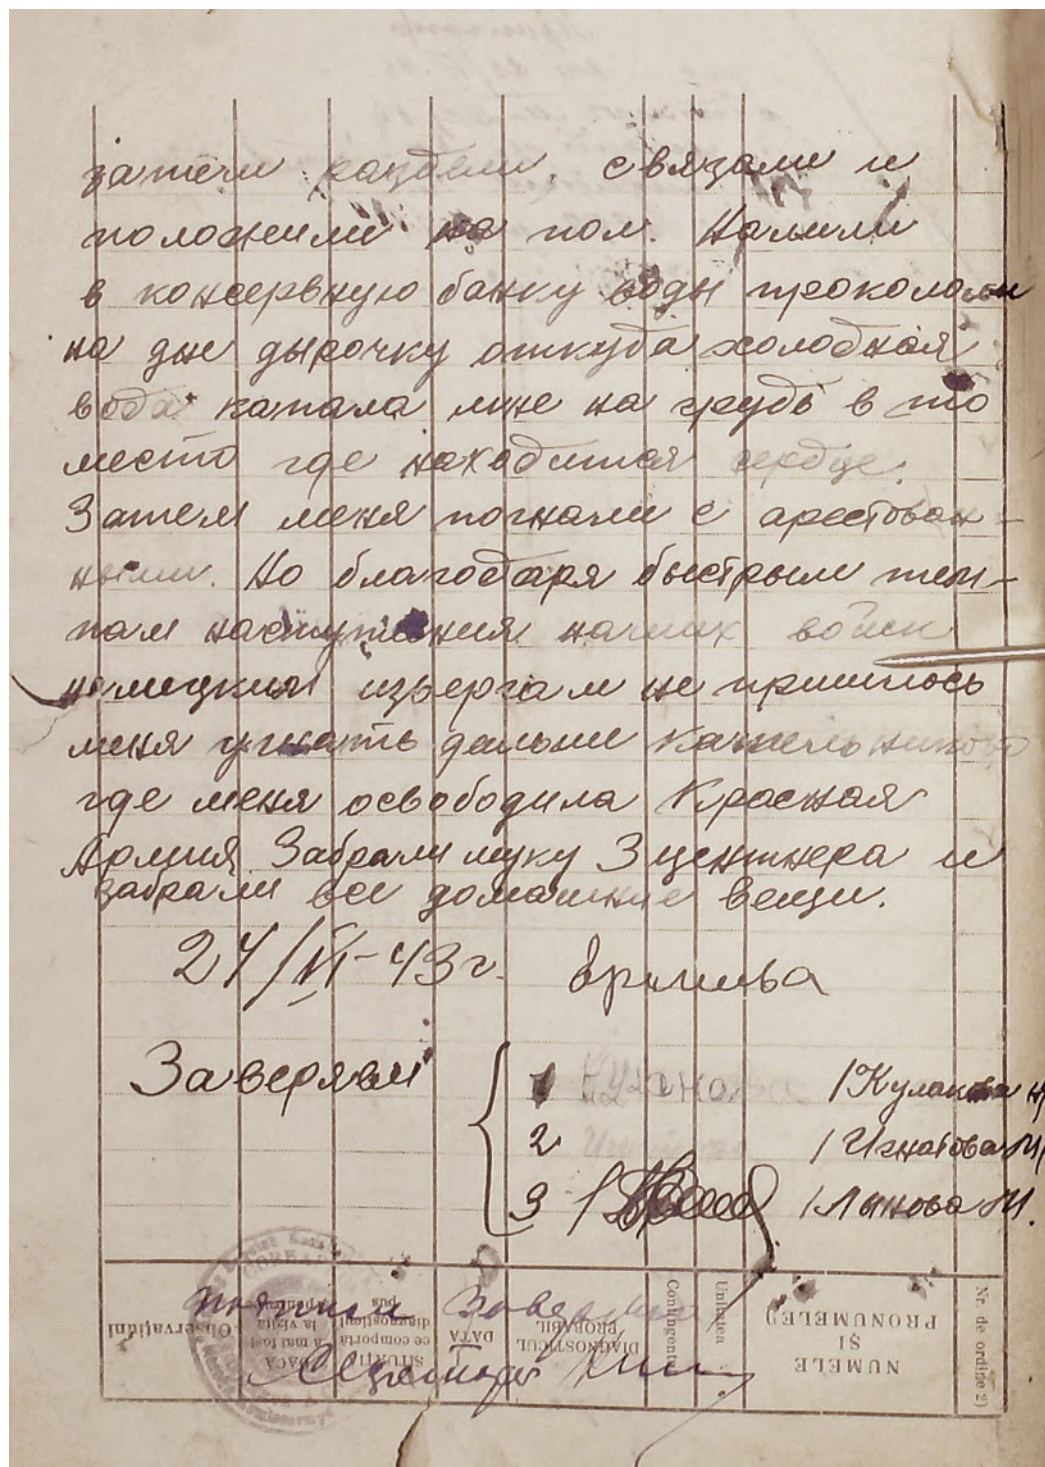 затем раздели, связали и
положили на пол. Налили
в консервную банку воды прокололи
на дне дырочку откуда холодная
вода капала мне на грудь в то
место где находится сердце.
Затем меня погнали с арестован-
ными. Но благодаря быстрым тем-
пам наступления наших войск
немецким извергам не пришлось
меня угнать дальше Котельниково
где меня освободила Красная
Армия. Забрали муку 3 центнера и
забрали все домашние вещи.
24/VI-43 г.
Заверяем
1 /Кулакова Н
2 /Игнатова М/
3 /Лынова М.
Подписи Заверяю
Секретарь
Nr. de ordine 2)
NUMELE
ȘI
PRONUMELE 1)
Unitatea
Contingentul
DIAGNOSTICUL
PROBABIL
DATA
SITUAȚIA
ce comportă
diagnosticul
pus
DACA
a mai fost
la vizită
Observațiuni